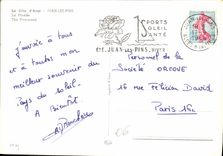 La Côte d'Azur - JUAN-LES-PINS
La Pinède
The Pinewood
SPORTS
SOLEIL
SANTÉ
JUAN-LES-PINS
J'envoie à tous
et à toutes mon
meilleur souvenir du
Pays du soleil.
A Bientôt
Personnel de la
Société
16 rue
Paris 16e